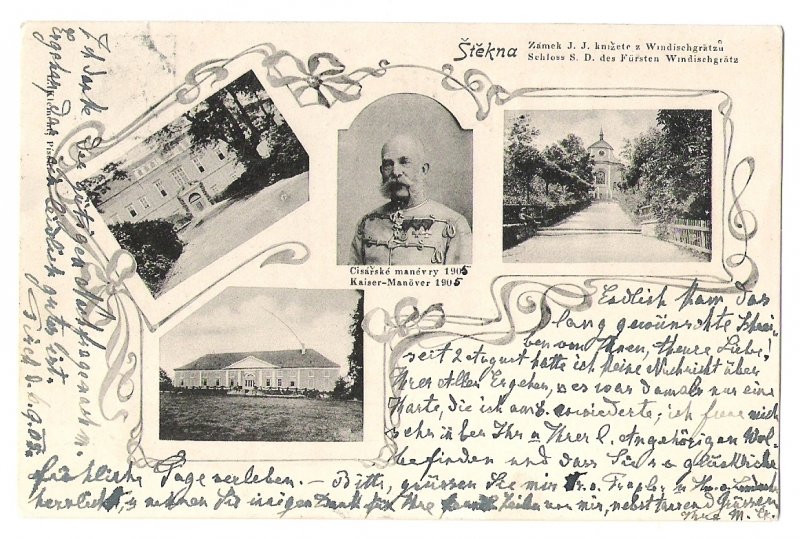 Štěkna
Zámek J. J. knížete z Windischgrätzů
Schloss S. D. des Fürsten Windischgrätz
Císařské manévry 1905
Kaiser-Manöver 1905
Endlich kam das
lang gewünschte Schrei-
ben von Ihnen, theure Liebe!
seit 2 August hatte ich keine Nachricht über
Ihrer Allen Ergehen, es war damals nur eine
Karte, die ich erwiederte; ich freue mich
sehr über Ihr u Ihrer l. Angehörigen Wol-
befinden und dass Sie so glückliche
fröhliche Tage verleben. – Bitte, grüssen Sie mir
herrlichst, u nehmen Sie innigen Dank für Ihre von mir, nebst tausend Grüssen
Ihre M.
Ich danke der gütigen Nachfrage nach m.
Ergehen, gut ist.
9.05.